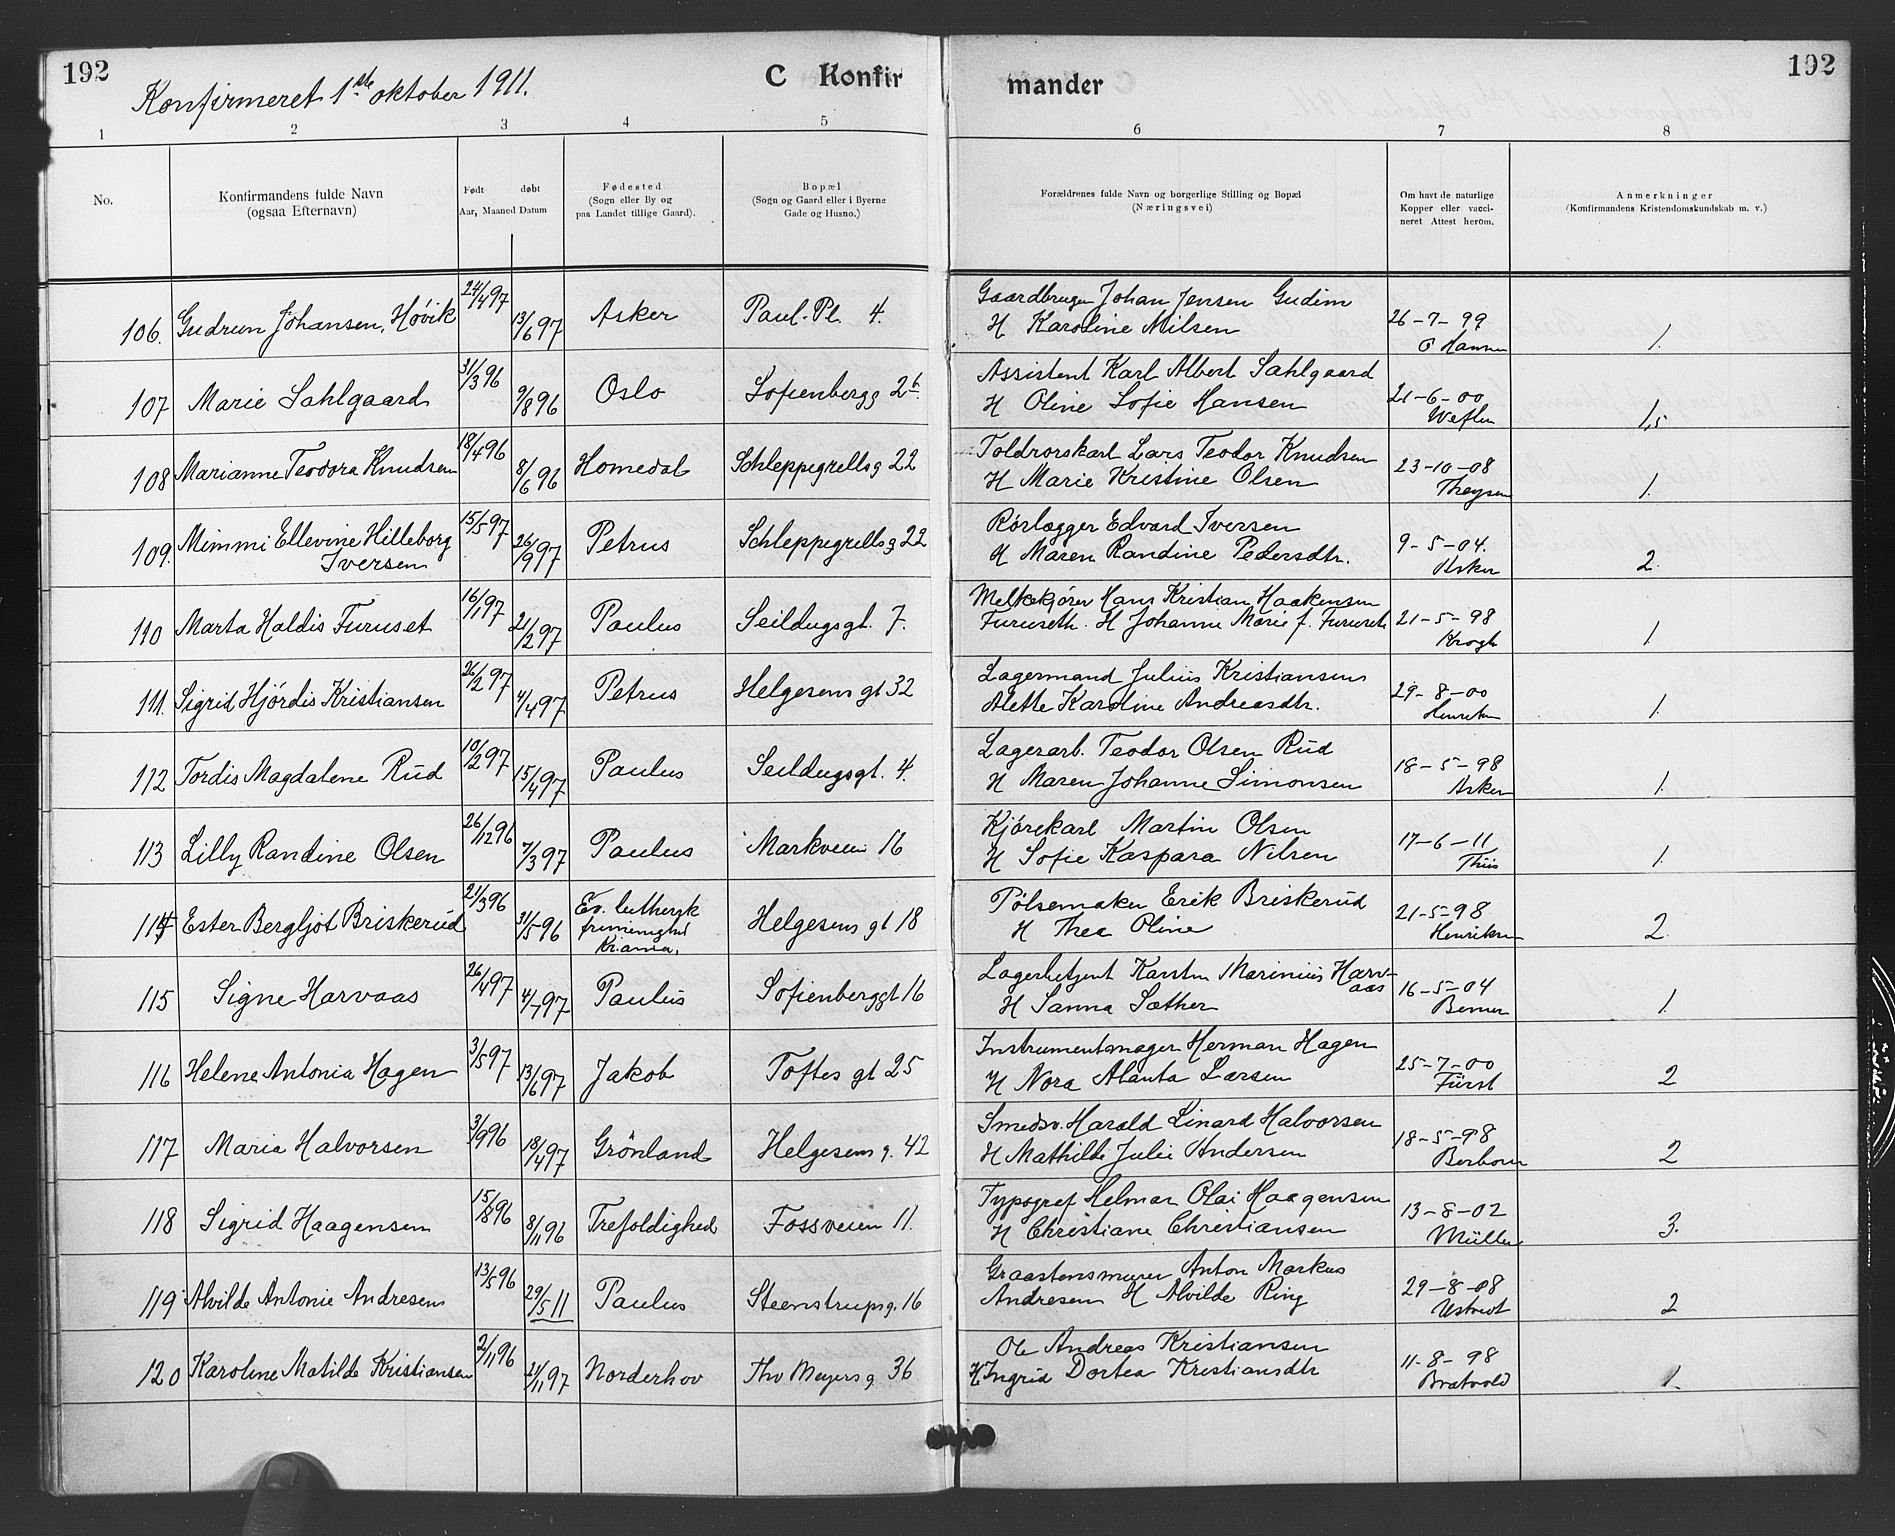 192
Konfirmeret 1ste oktober 1911.
C Konfir
mander
192
1 2 3 4 5 6 7 8
No.
Konfirmandens fulde Navn
(ogsaa Efternavn)
Født døbt
Aar, Maaned Datum
Fødested
(Sogn eller By og
paa Landet tillige Gaard).
Bopæl
(Sogn og Gaard eller i Byerne
Gade og Husno.)
Forældrenes fulde Navn og borgerlige Stilling og Bopæl
(Næringsvei)
Om havt de naturlige
Kopper eller vacci-
neret Attest herom.
Anmerkninger
(Konfirmandens Kristendomskundskab m. v.)
106. Gudrun Johansen, Høvik 24/4 97 13/6 97 Asker Paul. Pl. 4. Gaardbruger Johan Jensen Gudim
H Karoline Nilsen 26-7-99 O Hansen 1.
107 Marie Sahlgaard 31/3 96 9/8 96 Oslo Sofienbergg 2b. Assistent Karl Albert Sahlgaard
H Oline Sofie Hansen 21-6-00 Weflen 1,5
108 Marianne Teodora Knudsen 18/4 96 8/6 96 Homedal Schleppegrellsg 22 Toldrorskarl Lars Teodor Knudsen
H Marie Kristine Olsen 23-10-08 Thegsen 1.
109. Mimmi Ellevine Hilleborg
Iversen 15/5 97 26/9 97 Petrus Schleppegrellsg 22 Rørlægger Edvard Iversen
H Maren Randine Pedersdtr. 9-5-04. Asker 2.
110 Marta Haldis Furuset 16/1 97 21/2 97 Paulus Seildugsgt. 7. Melkekjører Hans Kristian Haakensen
Furuseth. H Johanne Marie f. Furuseth 21-5-98 Krogh 1.
111. Sigrid Hjørdis Kristiansen 26/2 97 4/4 97 Petrus Helgesens gt 32 Lagermand Julius Kristiansens
Alette Karoline Andreasdtr. 29-8-00 Henriksen 1.
112 Tordis Magdalene Rud 10/2 97 15/4 97 Paulus Seildugsgt. 4. Lagerarb. Teodor Olsen Rud
H Maren Johanne Simonsen 18-5-98 Asker 1.
113 Lilly Randine Olsen 26/12 96 7/3 97 Paulus Markveien 16 Kjørekarl Martin Olsen
H Sofie Kaspara Nilsen 17-6-11 Thiis 1.
114 Ester Bergljot Briskerud 21/3 96 31/5 96 Ev. luthersk
frimenighed
Kr.ania. Helgesens gt 18 Pølsemaker Erik Briskerud
H Thea Oline 21-5-98 Henriksen 2.
115 Signe Harvaas 26/4 97 4/7 97 Paulus Sofienberggt 16 Lagerbetjent Karsten Marinius Harv-
aas
H Sanna Sæther 16-5-04 Berner 1.
116 Helene Antonia Hagen 3/5 97 13/6 97 Jakob Toftes gt 25 Instrumentmager Herman Hagen
H Nora Alanta Larsen 25-7-00 Fürst 2
117 Maria Halvorsen 3/9 96 18/4 97 Grønland Helgesens g. 42 Smedsv. Harald Linard Halvorsen
H Mathilde Julie Andersen 18-5-98 2
118 Sigrid Haagensen 15/8 96 8/11 96 Trefoldighed Fossveien 11. Typograf Helmar Olai Haagensen
H Christiane Christiansen 13-8-02 Müller 3.
119 Alvilde Antonie Andresen 13/5 96 29/5 11 Paulus Steenstrupsg. 16 Graastensmurer Anton Markus
Andresen H Alvilde Ring 29-8-08 Ustvedt 2
120 Karoline Matilde Kristiansen 2/11 96 21/11 97 Norderhov Thv Meyers g 36 Ole Andreas Kristiansen
H. Ingrid Dortea Kristiansdtr 11-8-98 Bratvold 1.